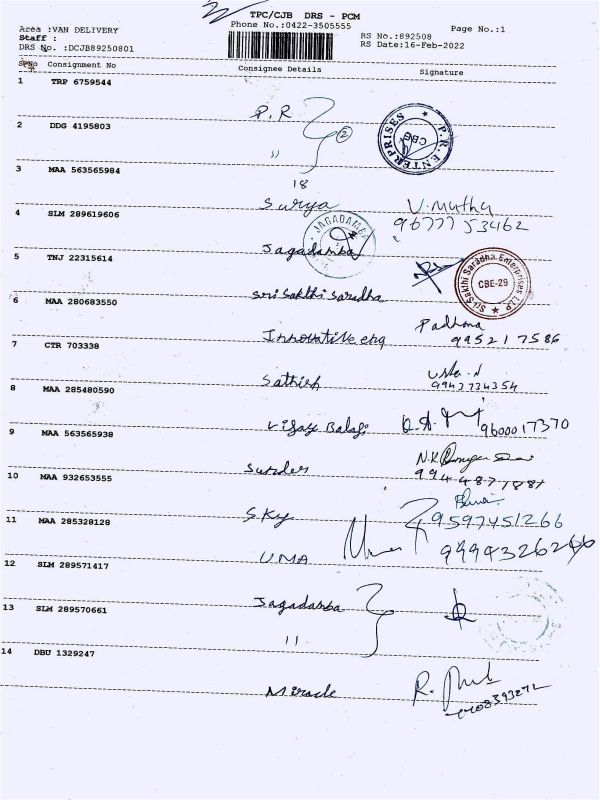 TPC/CJB DRS - PCM
Area :VAN DELIVERY Phone No.:0422-3505555 Page No.:1
Staff : RS No.:892508
DRS No. :DCJB89250801 RS Date:16-Feb-2022
SPNo Consignment No Consignee Details Signature
1 TRP 6759544
P.R P.R. ENTERPRISES CBE
2 DDG 4195803 2
,,
3 MAA 563565984
18
Surya V. Muthu
4 SLM 289619606 9677753462
JAGADAMBA
Jagadamba
5 TNJ 22315614
Sri Sakthi Saradha Sri Sakthi Saradha Enterprises LLP CBE-29
6 MAA 280683550
Innovative eng Padhma
7 CTR 703338 9952117586
Sathish
8 MAA 285480590 9943734354
Vijay Balaji 9600017370
9 MAA 563565938
Sunder N.K
10 MAA 932653555
SKY 9597451266
11 MAA 285328128
UMA
12 SLM 289571417
Jagadamba
13 SLM 289570661
11
14 DBU 1329247
Miracle R.